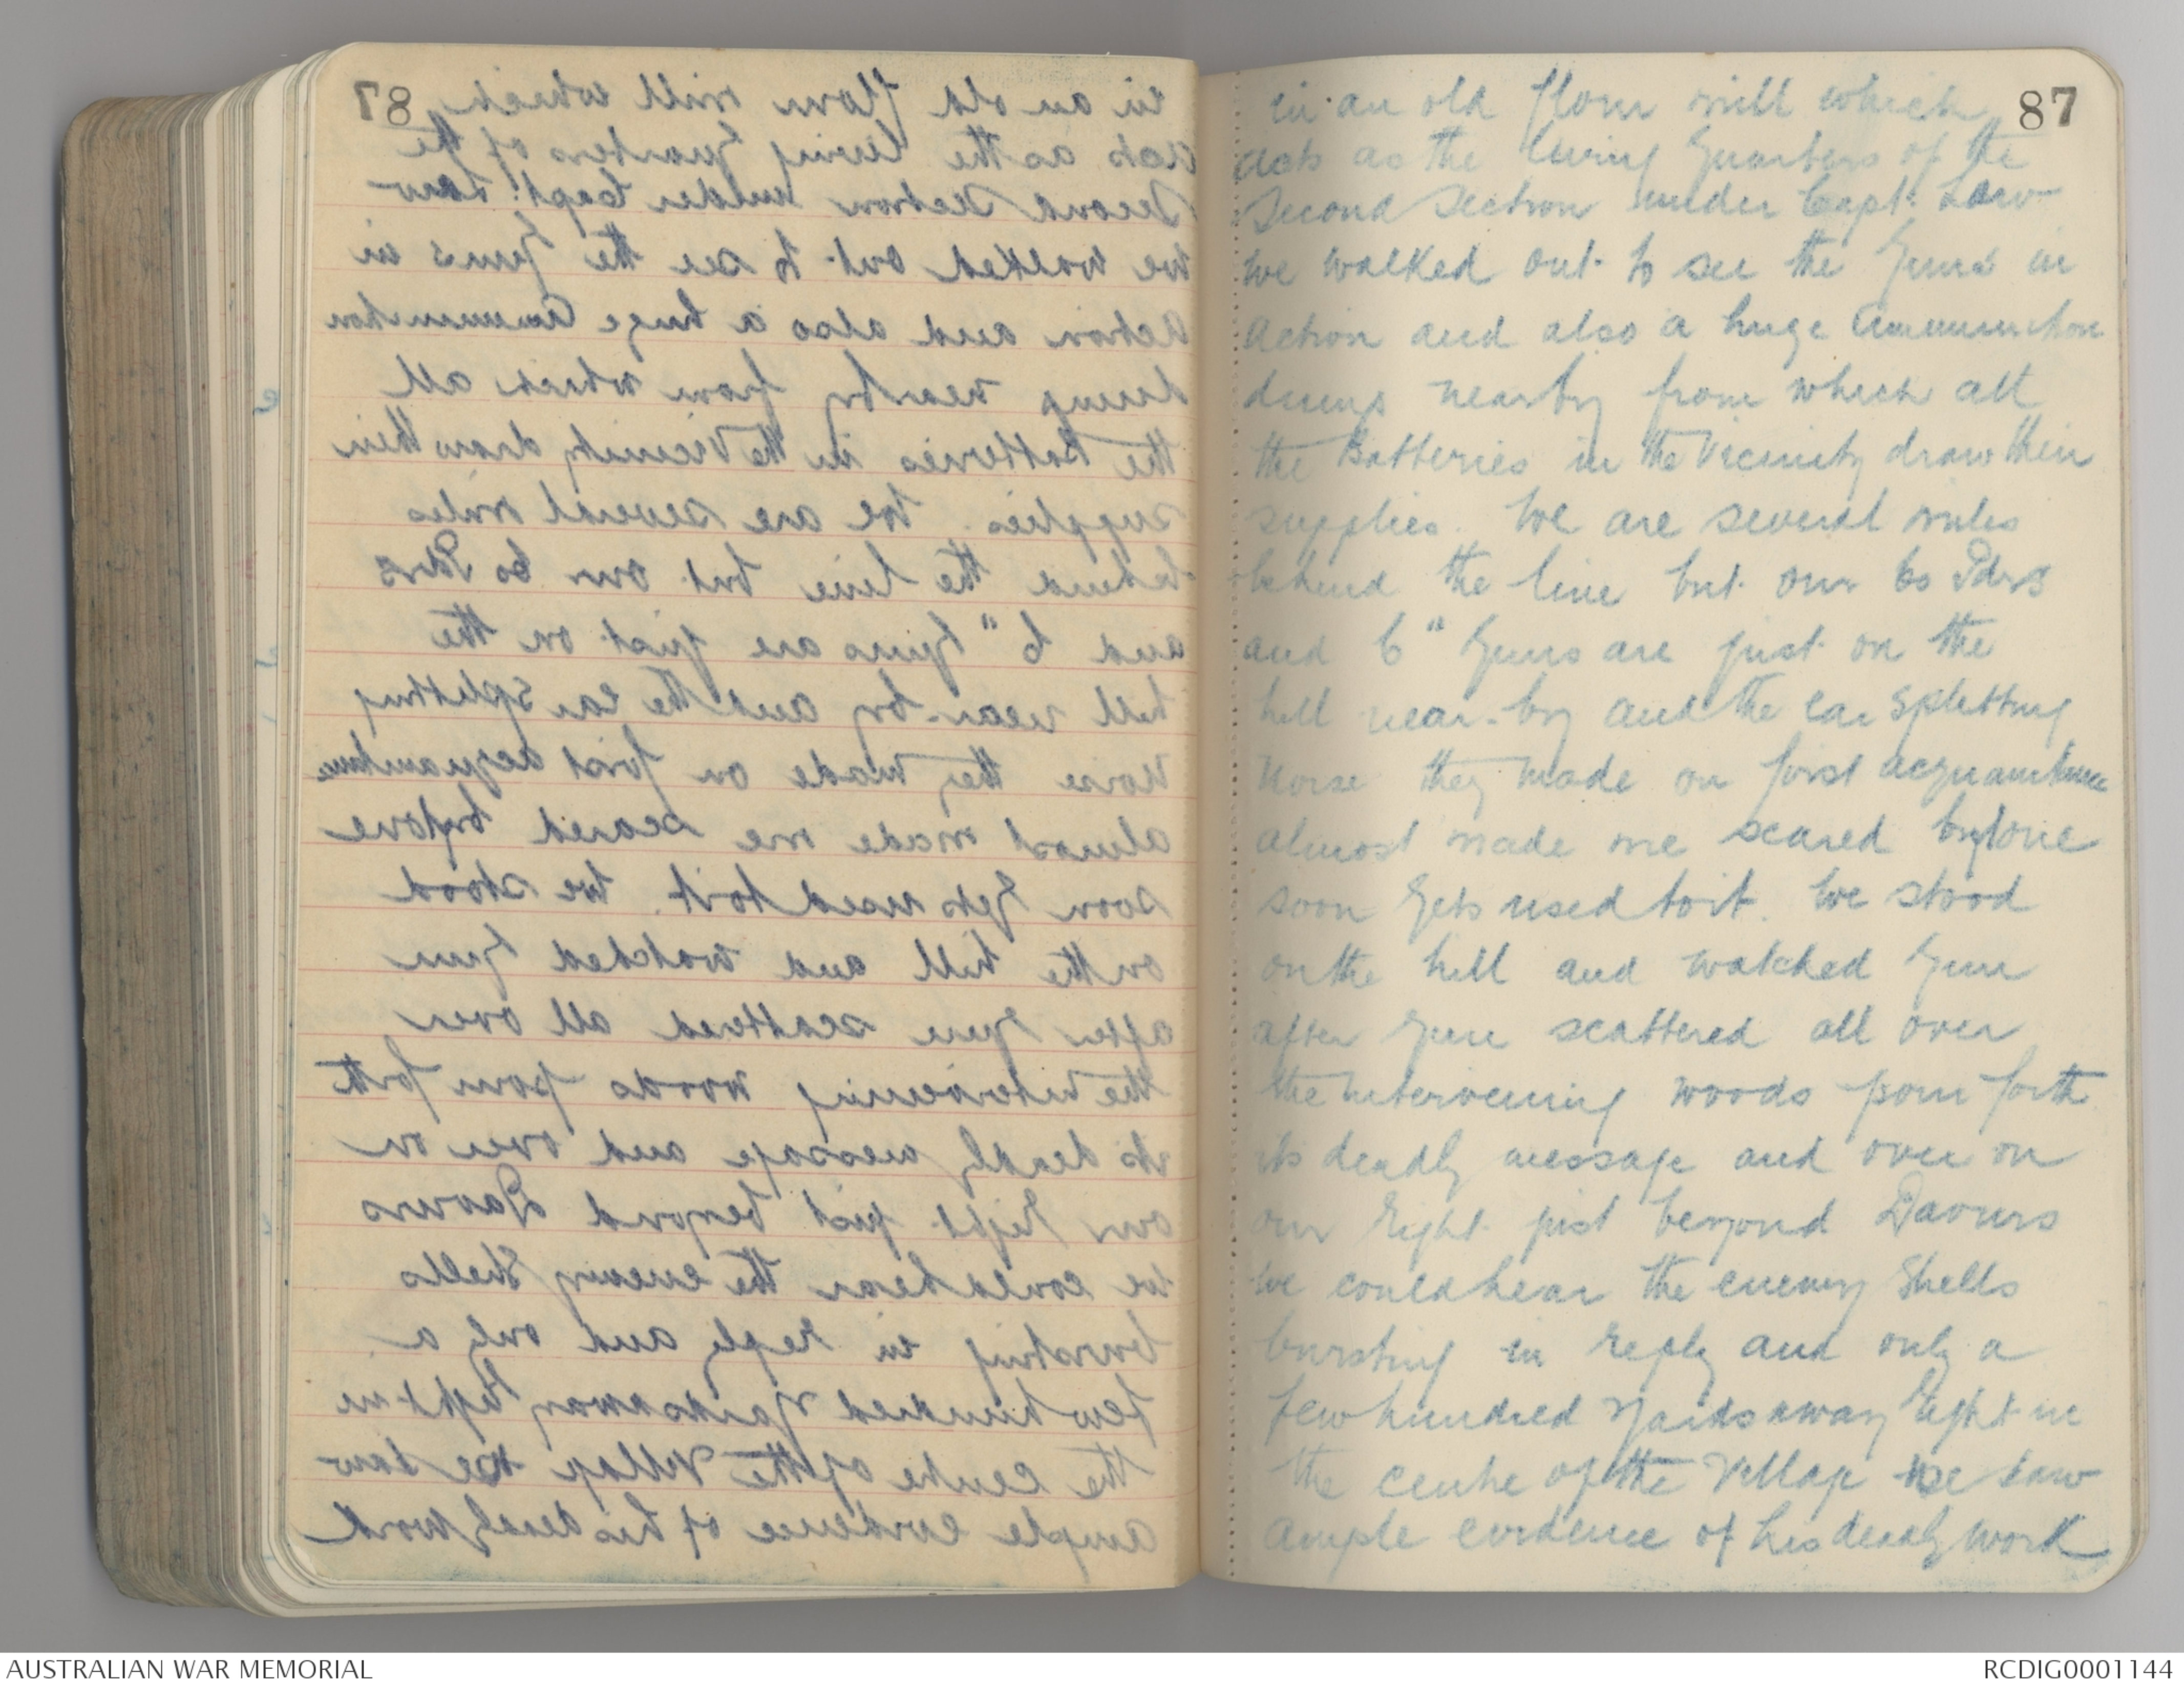 87
in an old flour mill which
acts as the living Quarters of the
Second Section under Capt. Law
we walked out to see the Guns in
Action and also a huge Ammunition
dump nearby from which all
the Batteries in the Vicinity draw their
supplies. We are several miles
behind the line but our 60 Pdrs
and 6" Guns are just on the
hill near-by and the ear splitting
Noise they made on first acquaintance
almost made me scared but one
soon gets used to it. We stood
on the hill and watched Gun
after Gun scattered all over
the intervening woods pour forth
its deadly message and over on
our Right just beyond Daours
we could hear the enemy Shells
bursting in Reply and only a
few hundred Yards away Right in
the centre of the Village we saw
ample evidence of his deadly work
AUSTRALIAN WAR MEMORIAL
RCDIG0001144